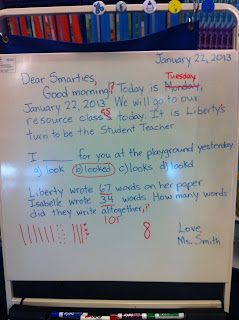 January 22, 2013
Dear Smarties,
Tuesday
Good morning!? Today is Monday,
January 22, 2013. We will go to our
resource class today. It is Liberty's
turn to be the Student Teacher.
I ____ for you at the playground yesterday.
a) look b) looked c) looks d) lookd
Liberty wrote 67 words on her paper.
Isabelle wrote 34 words. How many words
did they write altogether,?
101
8
Love,
Ms. Smith